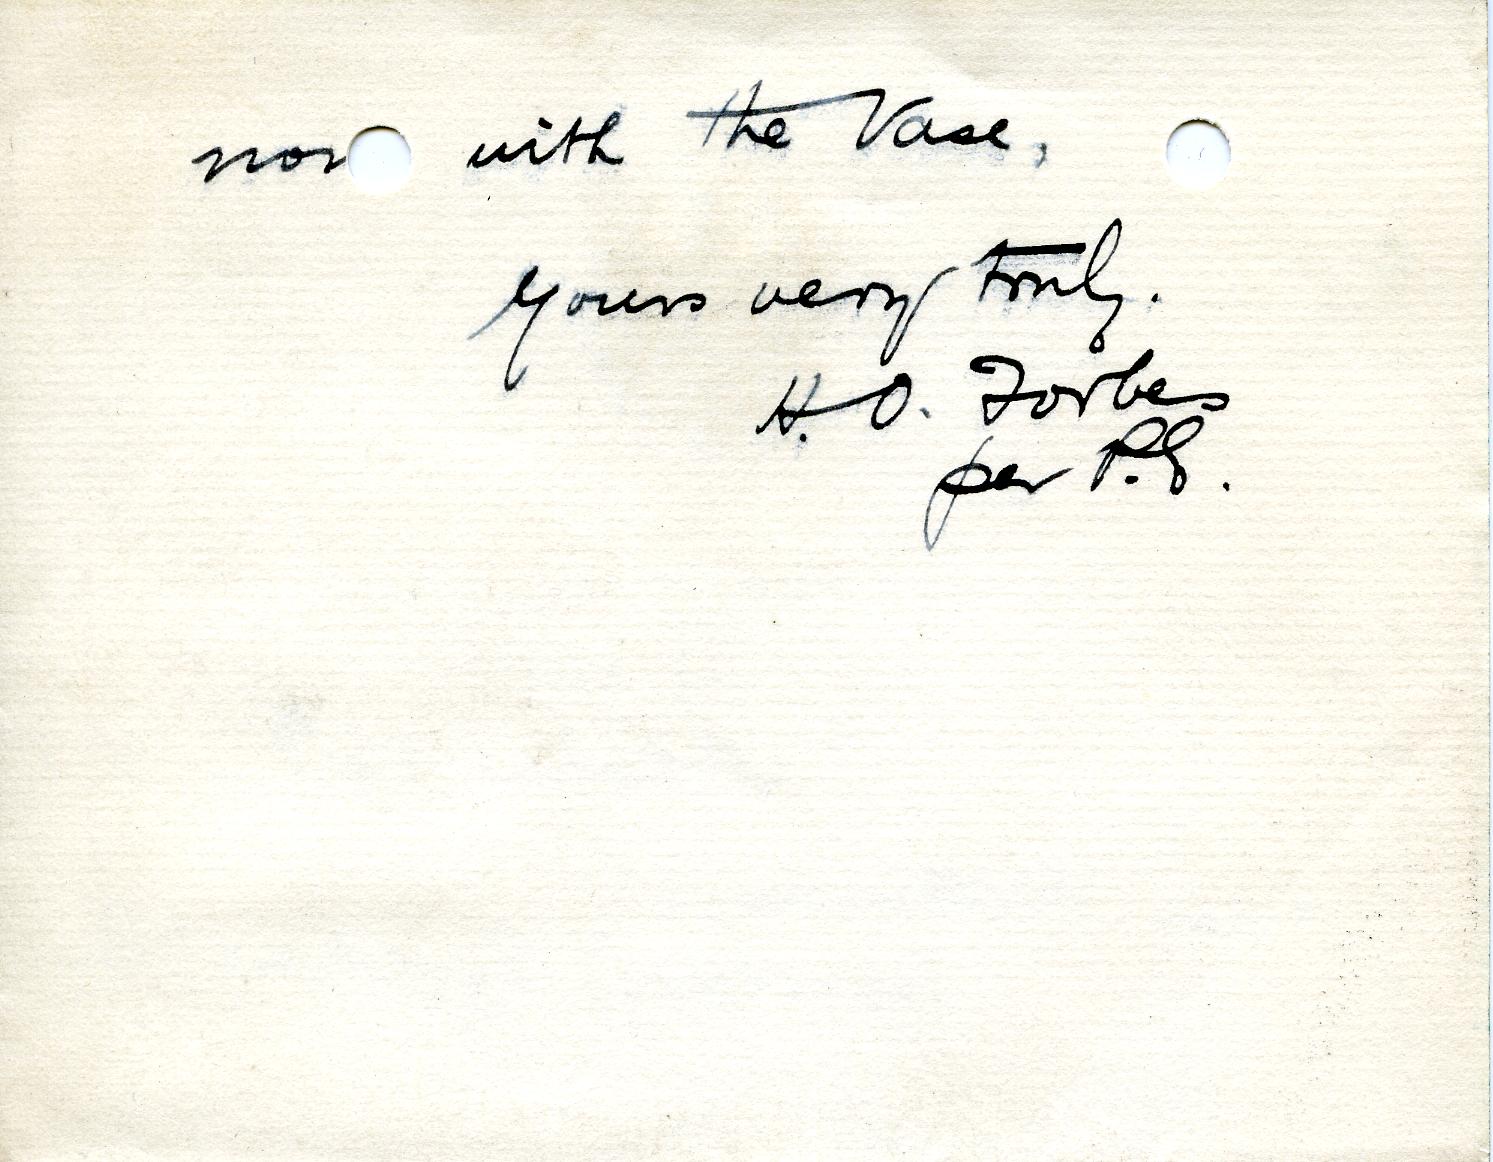 with the Vase.
Yours very truly.
H. O. Forbes
per P.G.